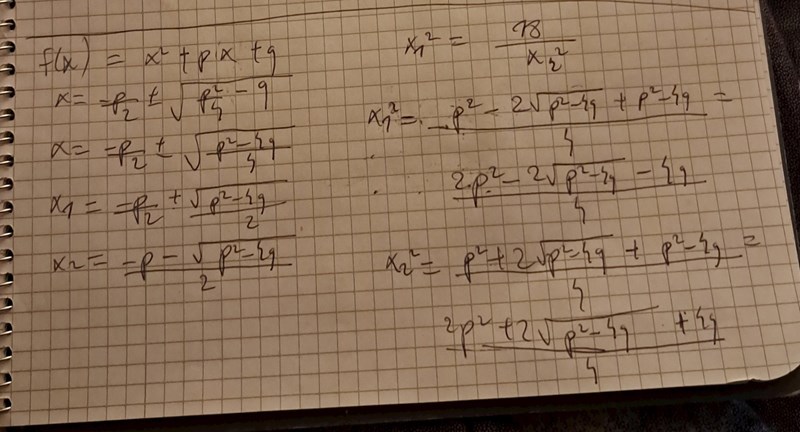 f(x) = x² + px + q
x = -p/2 ± √(p²/4 - q)
x = -p/2 ± √((p²-4q)/4)
x₁ = -p/2 ± √(p²-4q)/2
x₂ = (-p - √(p²-4q))/2
x₁² = 18/x₂²
x₁² = (p² - 2√(p²-4q) + p²-4q)/4 =
(2p² - 2√(p²-4q) - 4q)/4
x₂² = (p² + 2√(p²-4q) + p²-4q)/4 =
(2p² + 2√(p²-4q) + 4q)/4